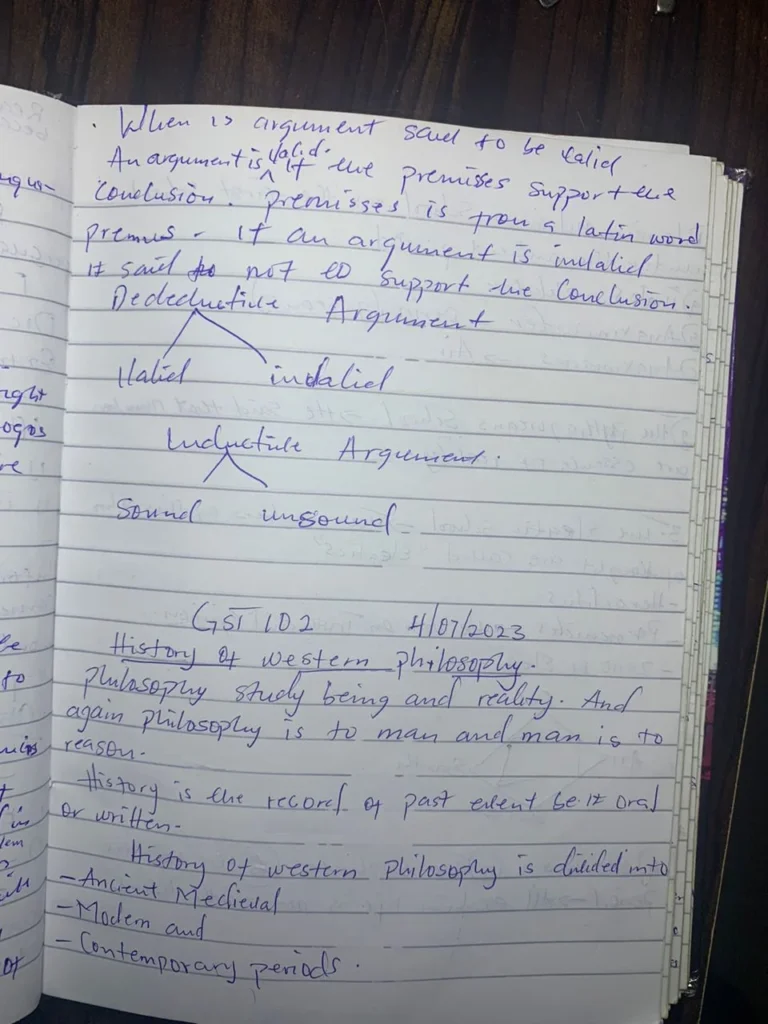 . When is argument said to be valid
An argument is valid. if the premises support the
conclusion. premisses is from a latin word
premus. If an argument is invalid
it said to not to support the conclusion.
Dedeductive Argument
Valid invalid
Inductive Argument.
Sound unsound
GST 102 4/07/2023
History of western philosophy.
philosophy study being and reality. And
again philosophy is to man and man is to
reason.
History is the record of past event be it oral
or written.
History of western philosophy is divided into
- Ancient Medieval
- Modern and
- Contemporary periods.